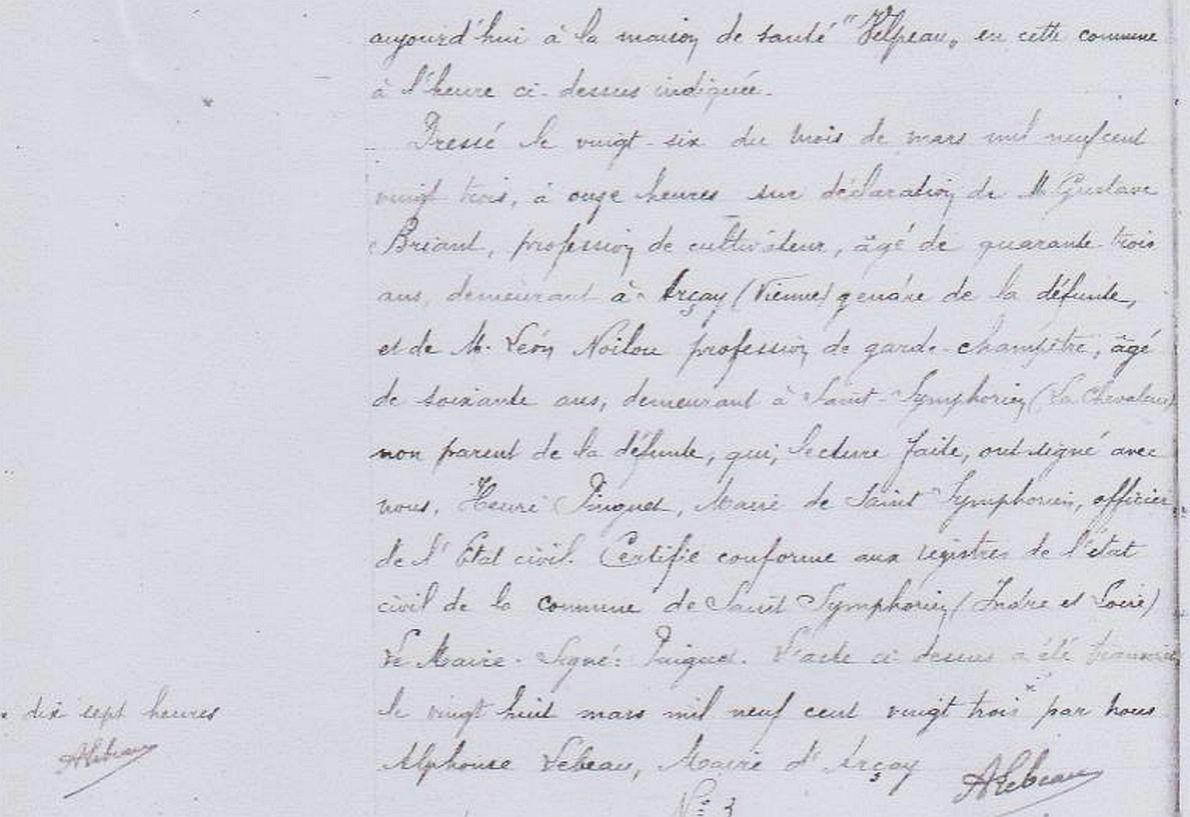 aujourd'hui à la maison de santé "Velpeau" en cette commune
à l'heure ci-dessus indiquée.
Dressé le vingt-six du mois de mars mil neuf cent
vingt trois, à onze heures sur déclaration de M. Gustave
Briant, profession de cultivateur, âgé de quarante-trois
ans, demeurant à Arçay (Vienne) gendre de la défunte,
et de M. Léon Noilou profession de garde-champêtre, âgé
de soixante ans, demeurant à Saint-Symphorien (La Chevalerie)
non parent de la défunte, qui, lecture faite, ont signé avec
nous, Henri Pinguet, Maire de Saint Symphorien, officier
de l'Etat civil. Certifié conforme aux registres de l'état
civil de la commune de Saint Symphorien (Indre et Loire)
Le Maire. Signé: Pinguet. L'acte ci dessus a été transcrit
x dix sept heures
ALebeau
le vingt huit mars mil neuf cent vingt trois x par nous
Alphonse Lebeau, Maire d'Arçay
ALebeau
N° 3